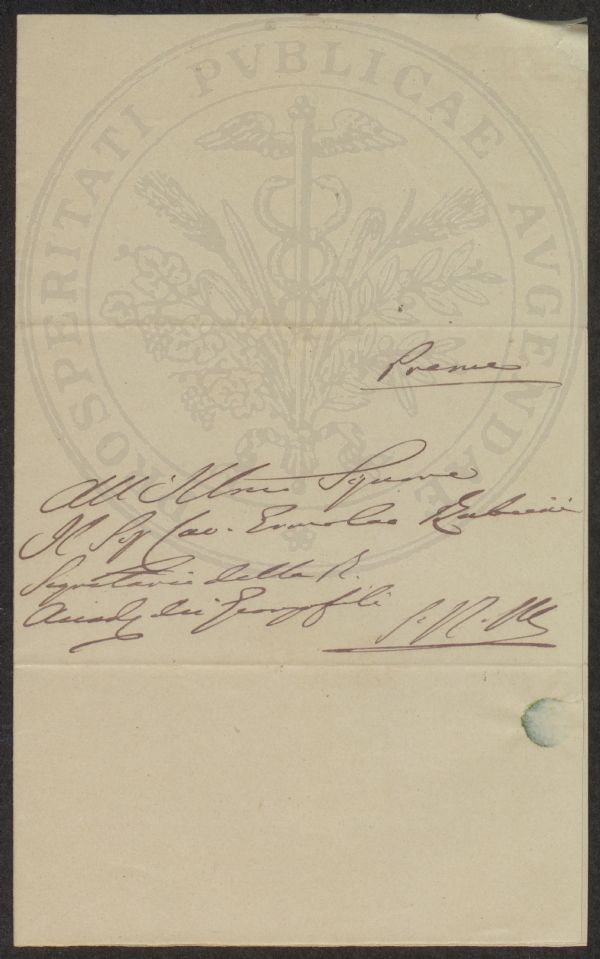 PROSPERITATI PVBLICAE AVGENDAE
Preme
All'Illmo Signore
Il Sigr Cav. Ermolao Rubieri
Segretario della R.
Accad. dei Georgofili
S. P. M.